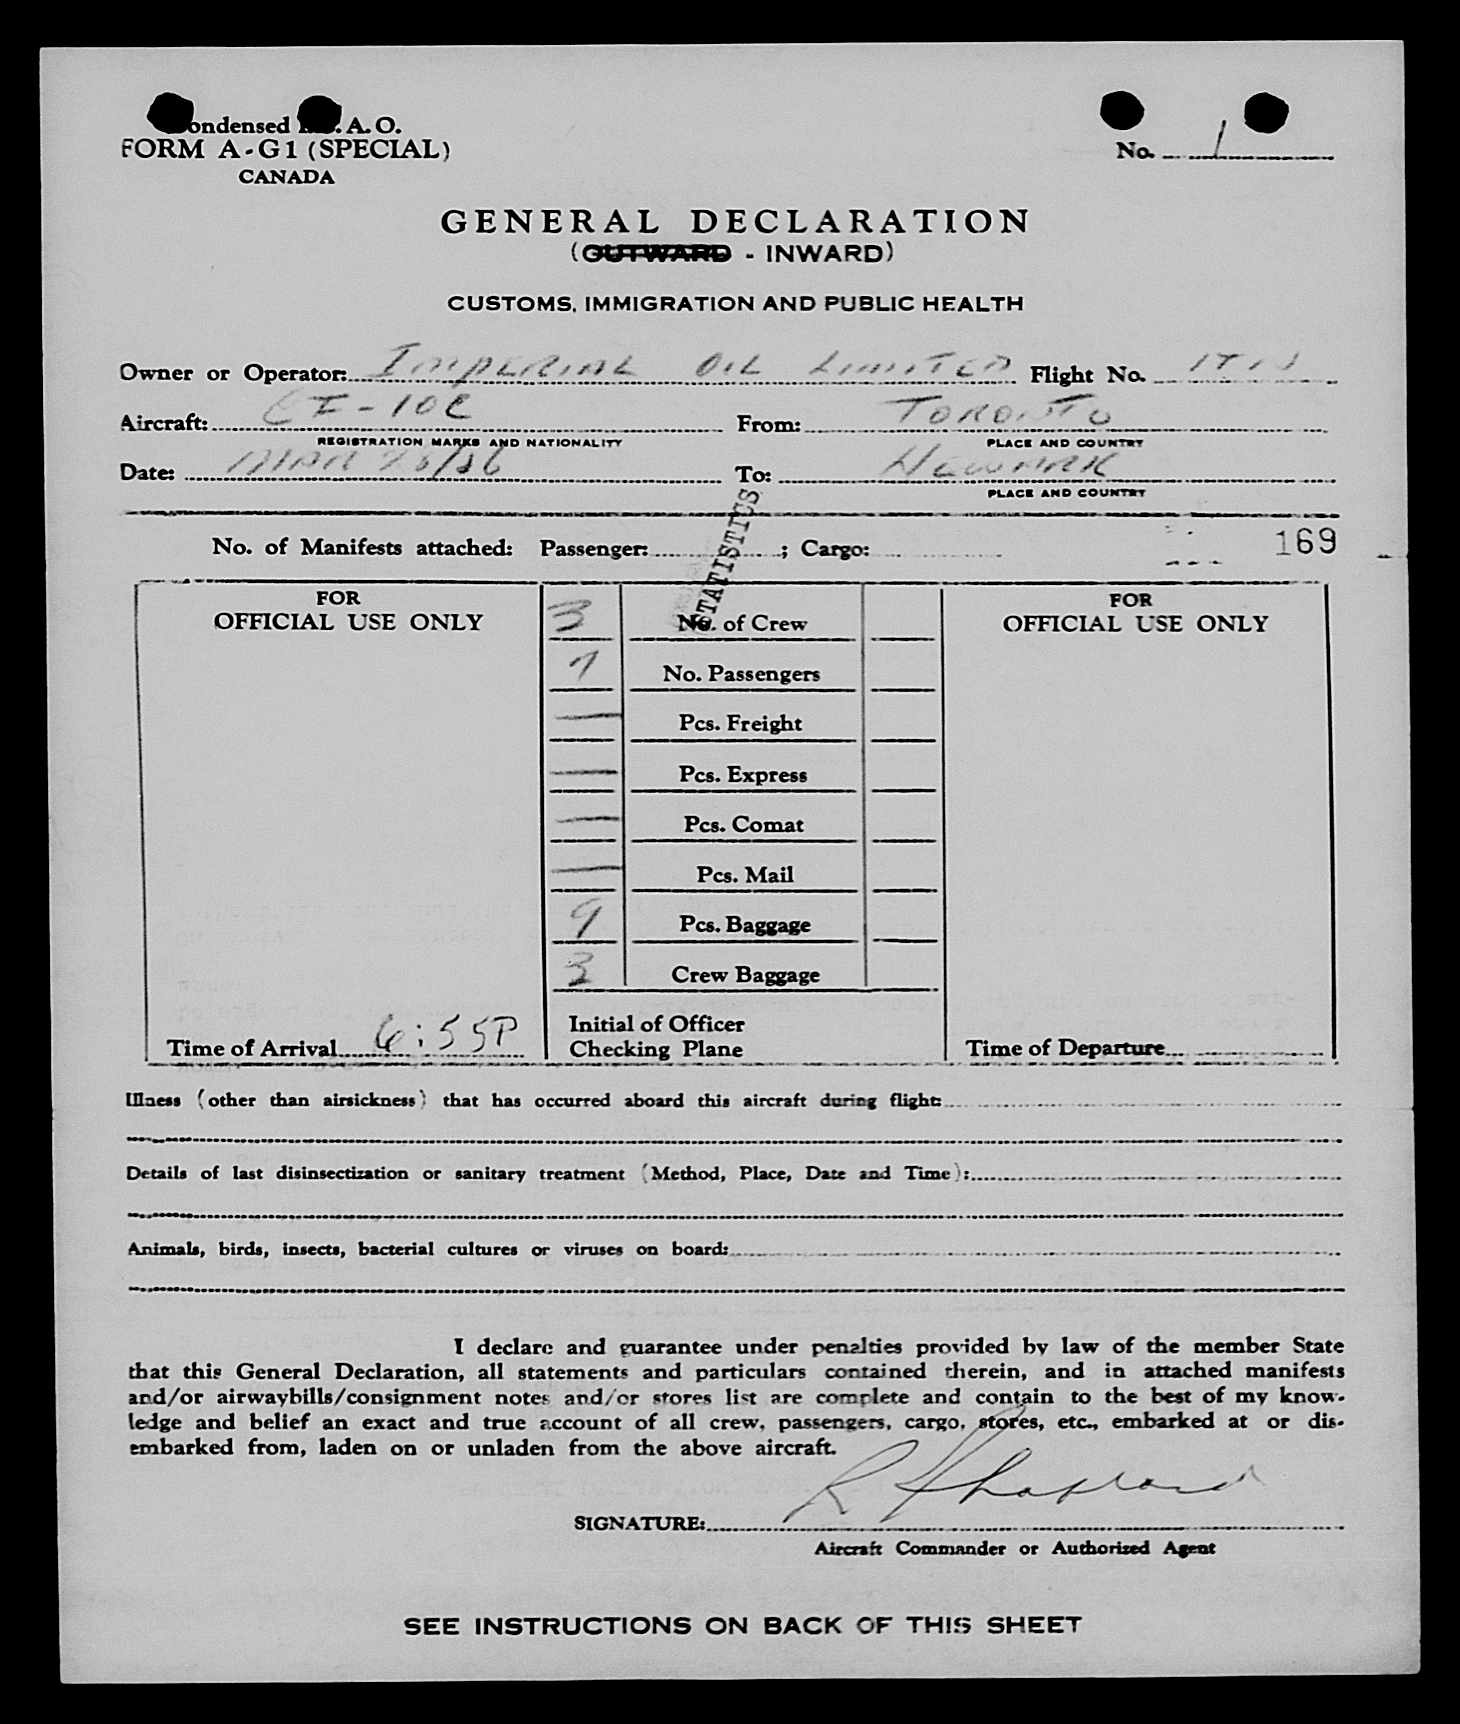 ondensed I.C.A.O.
FORM A-G1 (SPECIAL)
CANADA
No. 1
GENERAL DECLARATION
(OUTWARD - INWARD)
CUSTOMS, IMMIGRATION AND PUBLIC HEALTH
Owner or Operator: IMPERIAL OIL LIMITED Flight No.
Aircraft: CF-10C From: TORONTO
REGISTRATION MARKS AND NATIONALITY PLACE AND COUNTRY
Date: MAR /56 To: NEWARK
PLACE AND COUNTRY
STATISTICS
No. of Manifests attached: Passenger: ; Cargo: 169
FOR OFFICIAL USE ONLY
3 No. of Crew
7 No. Passengers
— Pcs. Freight
— Pcs. Express
— Pcs. Comat
— Pcs. Mail
9 Pcs. Baggage
3 Crew Baggage
Time of Arrival 6:55P
Initial of Officer
Checking Plane
FOR OFFICIAL USE ONLY
Time of Departure
Illness (other than airsickness) that has occurred aboard this aircraft during flight:
Details of last disinsectization or sanitary treatment (Method, Place, Date and Time):
Animals, birds, insects, bacterial cultures or viruses on board:
I declare and guarantee under penalties provided by law of the member State
that this General Declaration, all statements and particulars contained therein, and in attached manifests
and/or airwaybills/consignment notes and/or stores list are complete and contain to the best of my know-
ledge and belief an exact and true account of all crew, passengers, cargo, stores, etc., embarked at or dis-
embarked from, laden on or unladen from the above aircraft.
SIGNATURE: R Shappard
Aircraft Commander or Authorized Agent
SEE INSTRUCTIONS ON BACK OF THIS SHEET